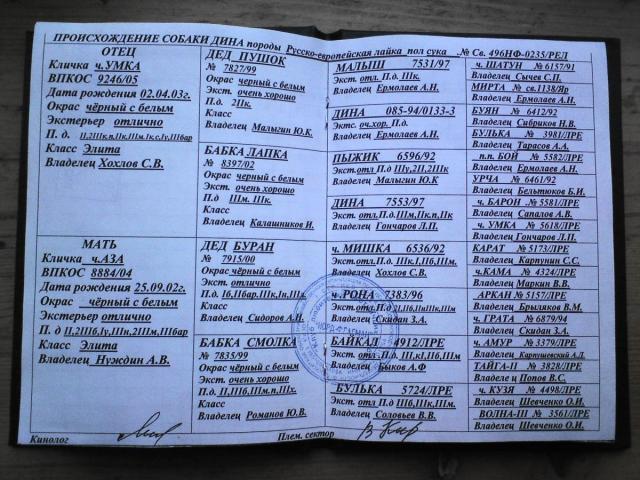 ПРОИСХОЖДЕНИЕ СОБАКИ ДИНА породы Русско-европейская лайка пол сука .№ Св. 496НФ-0235/РЕЛ
ОТЕЦ
Кличка ч.УМКА
ВПКОС 9246/05
Дата рождения 02.04.03г.
Окрас чёрный с белым
Экстерьер отлично
П. д.
Класс Элита
Владелец Хохлов С.В.
МАТЬ
Кличка ч.АЗА
ВПКОС 8884/04
Дата рождения 25.09.02г.
Окрас чёрный с белым
Экстерьер отлично
П д II,2IIб,Iу,IIп,2IIм,IIбар
Класс Элита
Владелец Нуждин А.В.
ДЕД ПУШОК
№ 7827/99
Окрас черный с белым
Экст. очень хорошо
П.д. 2IIк.
Класс
Владелец Малыгин Ю.К.
БАБКА ЛАПКА
№ 8397/02
Окрас черный с белым
Экст. очень хорошо
П.д IIIм. IIIк.
Класс
Владелец Калашников И.
ДЕД БУРАН
№ 7915/00
Окрас чёрный с белым
Экст. отлично
Класс
Владелец Сидоров А.Н.
БАБКА СМОЛКА
№ 7835/99
Окрас чёрный с белым
Экст. очень хорошо
Класс
Владелец Романов Ю.В.
МАЛЫШ 7531/97
Экст. отл. П.д. IIIк.
Владелец Ермолаев А.Н.
ДИНА 085-94/0133-3
Экст. оч.хор. П.д.
Владелец Ермолаев А.Н.
ПЫЖИК 6596/92
Экст. отл П.д IIIу,2II,IIIм
Владелец Малыгин Ю.К
ДИНА 7553/97
Экст. отл.П.д.IIIм,IIк.п,IIк
Владелец Гончаров Л.П.
ч. МИШКА 6536/92
Владелец Хохлов С.В.
ч.РОНА 7383/96
Владелец Скидан З.А.
БАЙКАЛ 4912/ЛРЕ
Экст. отл.П.д. III,кI,IIб,IIIм
Владелец Быков А.Ф
БУЛЬКА 5724/ЛРЕ
Экст. отл П.д IIIб,IIк,IIIм.
Владелец Соловьев В.В.
ч. ШАТУН № 6157/91
Владелец Сычев С.П.
МИРТА № св.1138/Яр
Владелец Ермолаев А.Н.
БУЯН № 6412/92
Владелец Сибриков Н.В.
БУЛЬКА № 3981/ЛРЕ
Владелец Тарасов А.А.
п.п. БОЙ № 5582/ЛРЕ
Владелец Ермолаев А.Н.
УРЧА № 6461/92
Владелец Бельтюков Б.И.
ч. БАРОН № 5581/ЛРЕ
Владелец Сапалов А.В.
ч. УМКА № 5618/ЛРЕ
Владелец Гончаров Л.П.
КАРАТ № 5173/ЛРЕ
Владелец Карпунин С.С.
ч.КАМА № 4324/ЛРЕ
Владелец Маркин В.В.
АРКАН № 5157/ЛРЕ
Владелец Брыляков В.М.
ч. ГРАТА № 6879/94
Владелец Скидан З.А.
ч. АМУР № 3379/ЛРЕ
Владелец Карпушевский А.Л
ТАЙГА-II № 3828/ЛРЕ
Владелец и Попов В.С.
ч. КУЗЯ № 4498/ЛРЕ
Владелец Шевченко О.И.
ВОЛНА-III № 3561/ЛРЕ
Владелец Шевченко О.И.
Кинолог
Плем. сектор